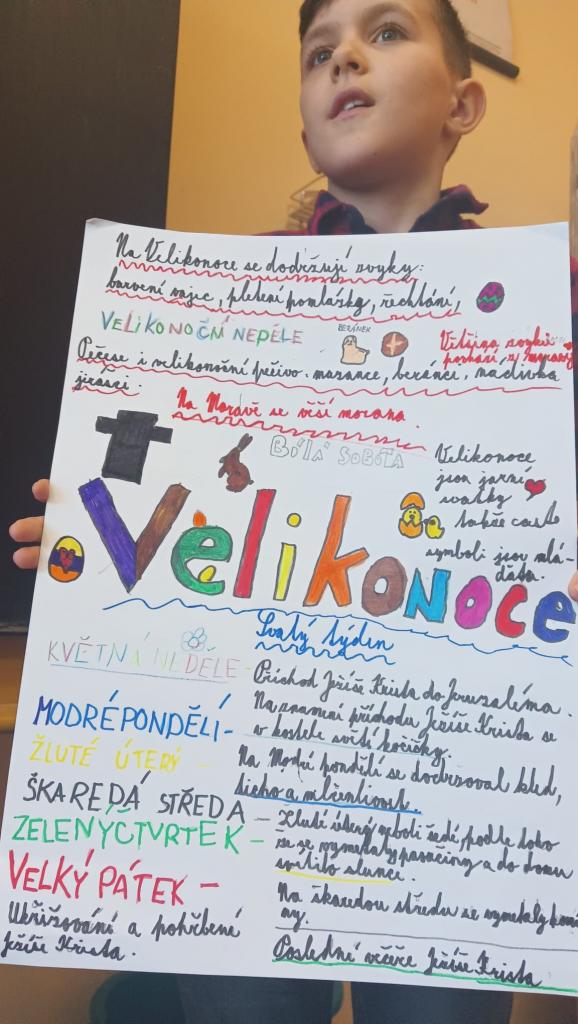 Na Velikonoce se dodržují zvyky:
barvení vajec, pletení pomlázky, řechtání,
VELIKONOČNÍ NEPĚLE
BERÁNEK
Většina zvyků
pochází z moravy
Pečese i velikonoční pečivo. mazance, beránci, nadívka
jidáši.
Na Moravě se věší morana.
BÍLÁ SOBOTA
Velikonoce
jsou jarní
svátky
takže časté
symboli jsou mlá-
ďata.
Velikonoce
Svatý týden
KVĚTNÁ NEDĚLE -
Příchod Ježíše Krista do Jeruzaléma.
Na znamení příchodu Ježíše Krista se
v kostele světí kočičky.
MODRÉ PONDĚLÍ -
Na Modré pondělí se dodržoval klid,
ticho a mlčenlivost.
ŽLUTÉ ÚTERÝ -
Žluté úterý neboli šedé podle toho
že se vymetaly pavučiny a do domu
svítilo slunce.
ŠKAREDÁ STŘEDA -
Na škaredou středu se vymetaly komí
ny.
ZELENÝ ČTVRTEK -
Poslední věčeře Ježíše Krista
VELKÝ PÁTEK -
Ukřižování a pohřbené
Ježíše Krista.